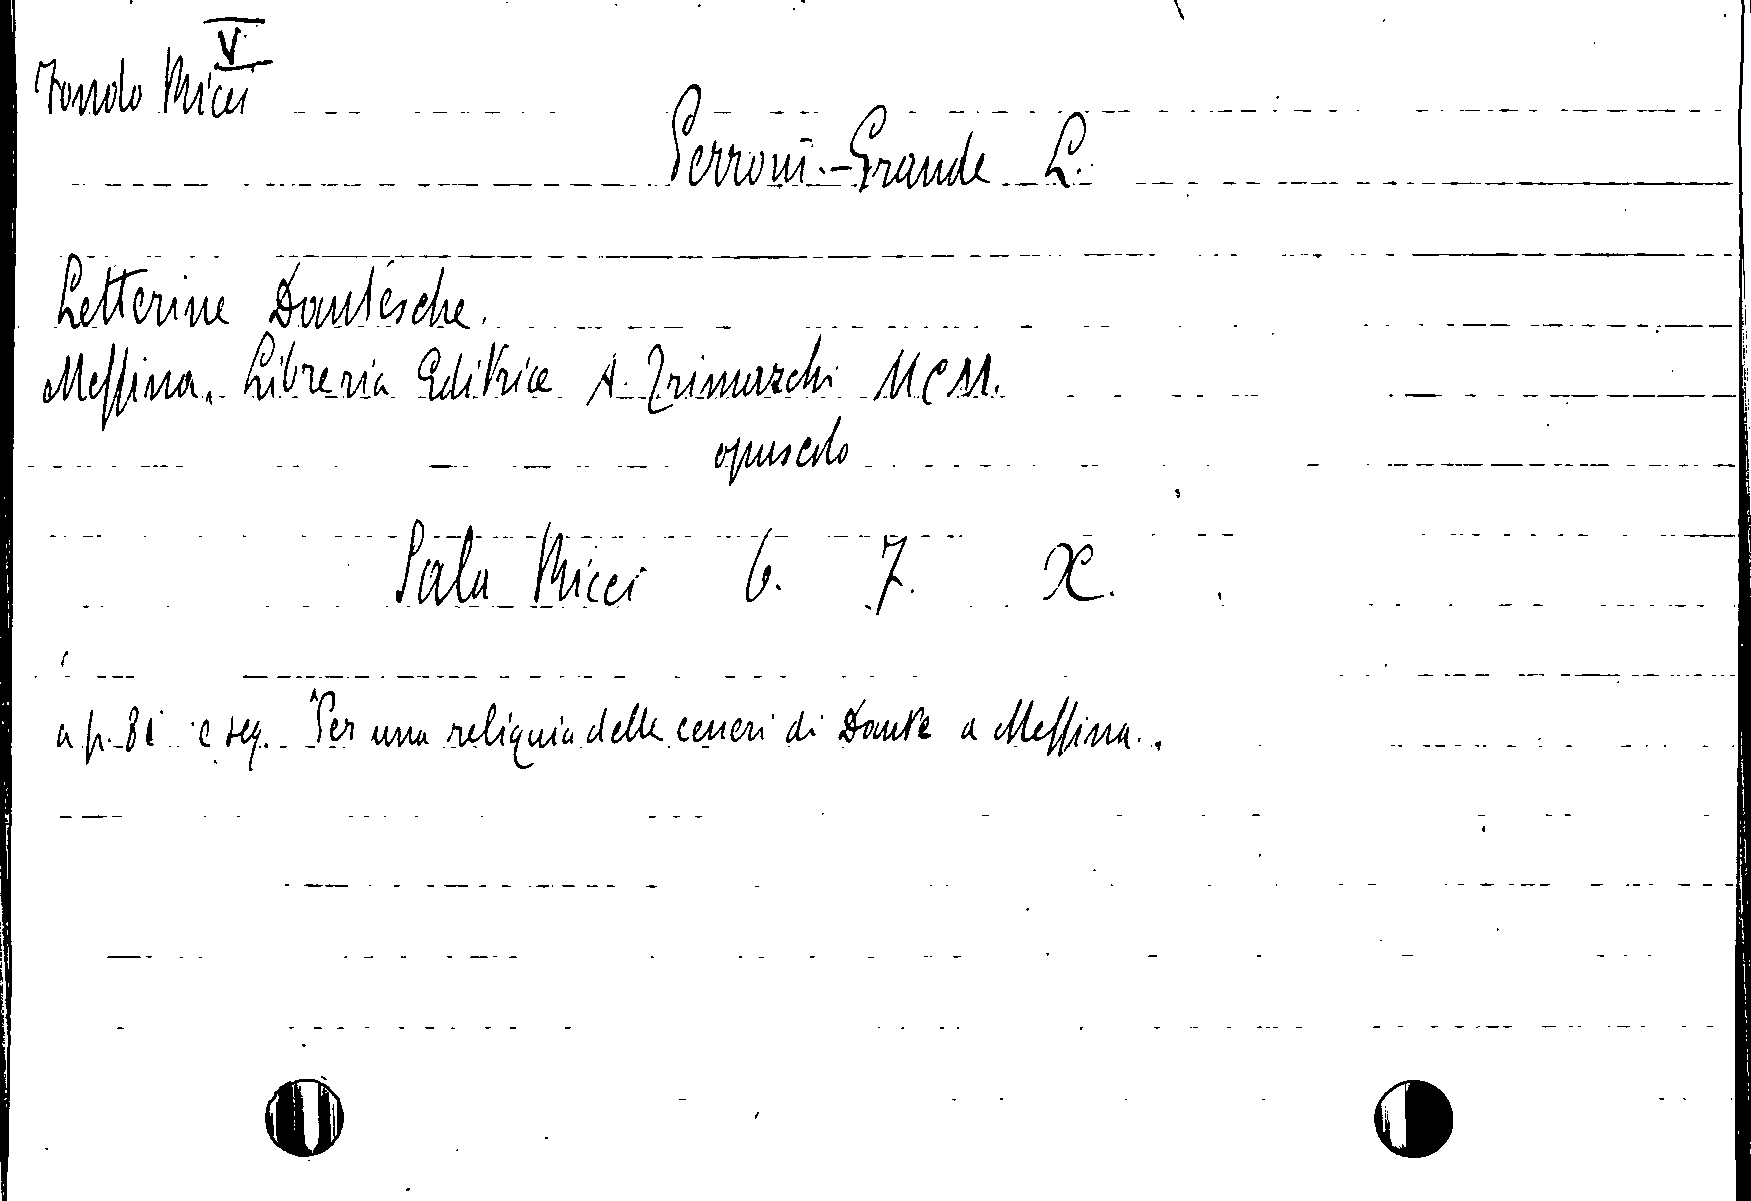 V
Fondo Ricci
Perroni-Grande L.
Letterine Dantesche.
Messina. Libreria Editrice A. Trimarchi MCM.
opuscolo
Sala Ricci 6. 7. X.
a p. 81 e seg. "Per una reliquia delle ceneri di Dante a Messina".